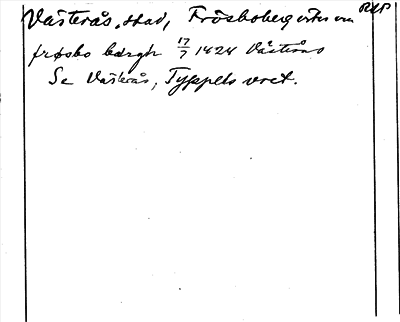 Västerås, stad, Frösboberg RAP
frøsbo bærgh 17/7 1424 Västerås
Se Västerås, Typpels vret.